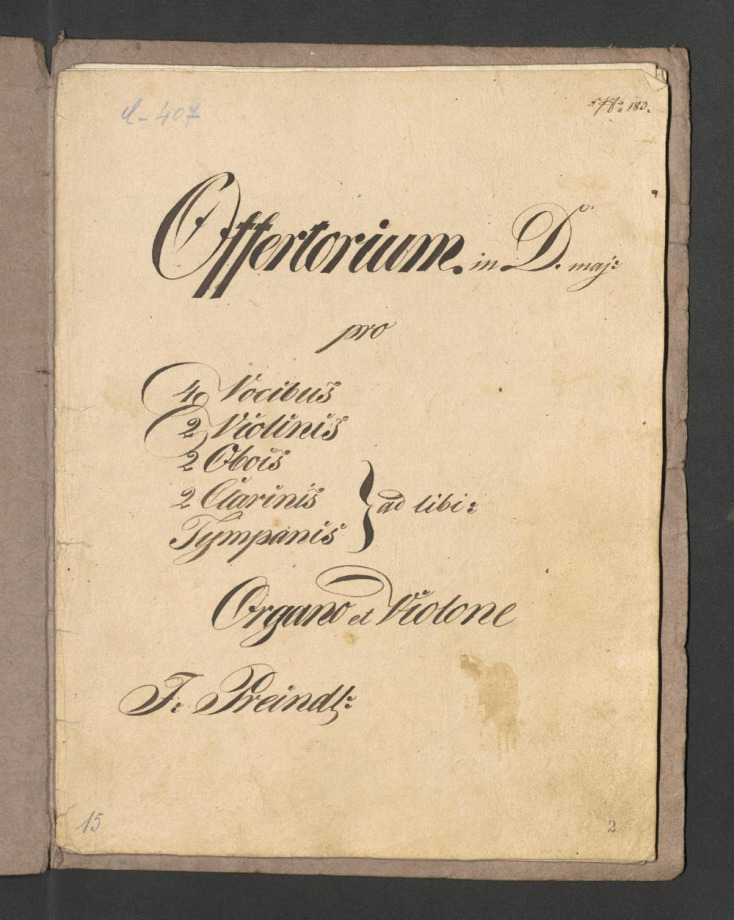 A-407
№ 180.
Offertorium. in D. maj:
pro
4 Vocibus
2 Violinis
2 Obois
2 Clarinis
Tympanis
} ad libi:
Organo et Violone
J: Preindl:
15
2